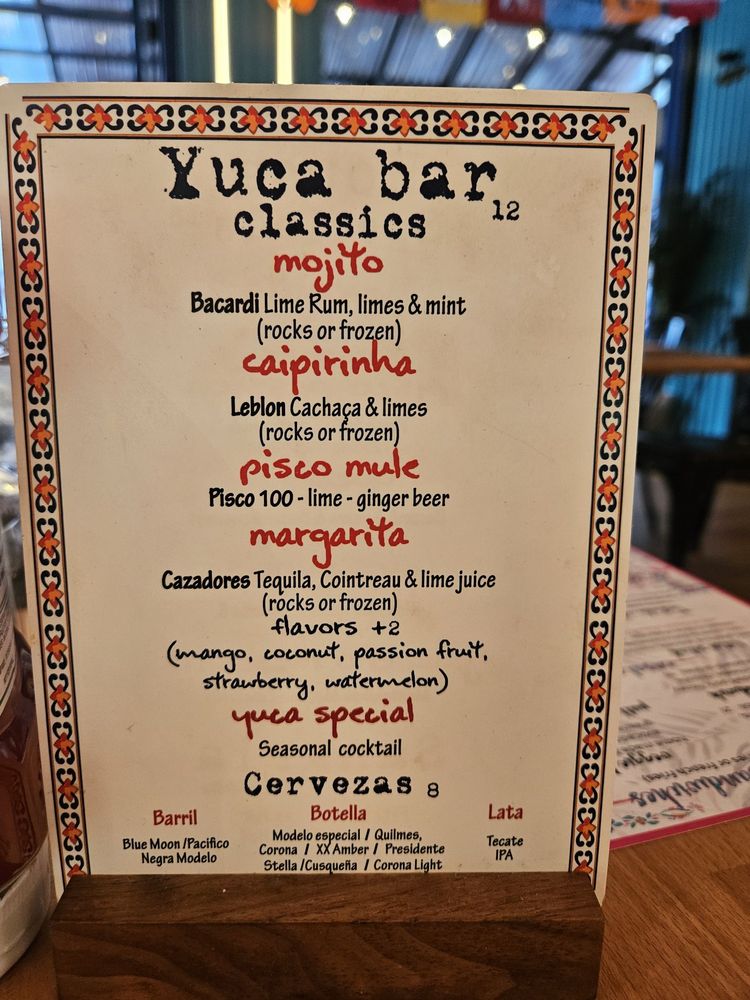 Yuca bar
classics 12
mojito
Bacardi Lime Rum, limes & mint
(rocks or frozen)
caipirinha
Leblon Cachaça & limes
(rocks or frozen)
pisco mule
Pisco 100 - lime - ginger beer
margarita
Cazadores Tequila, Cointreau & lime juice
(rocks or frozen)
flavors +2
(mango, coconut, passion fruit,
strawberry, watermelon)
yuca special
Seasonal cocktail
Cervezas 8
Barril
Blue Moon /Pacifico
Negra Modelo
Botella
Modelo especial / Quilmes,
Corona / XX Amber / Presidente
Stella /Cusqueña / Corona Light
Lata
Tecate
IPA